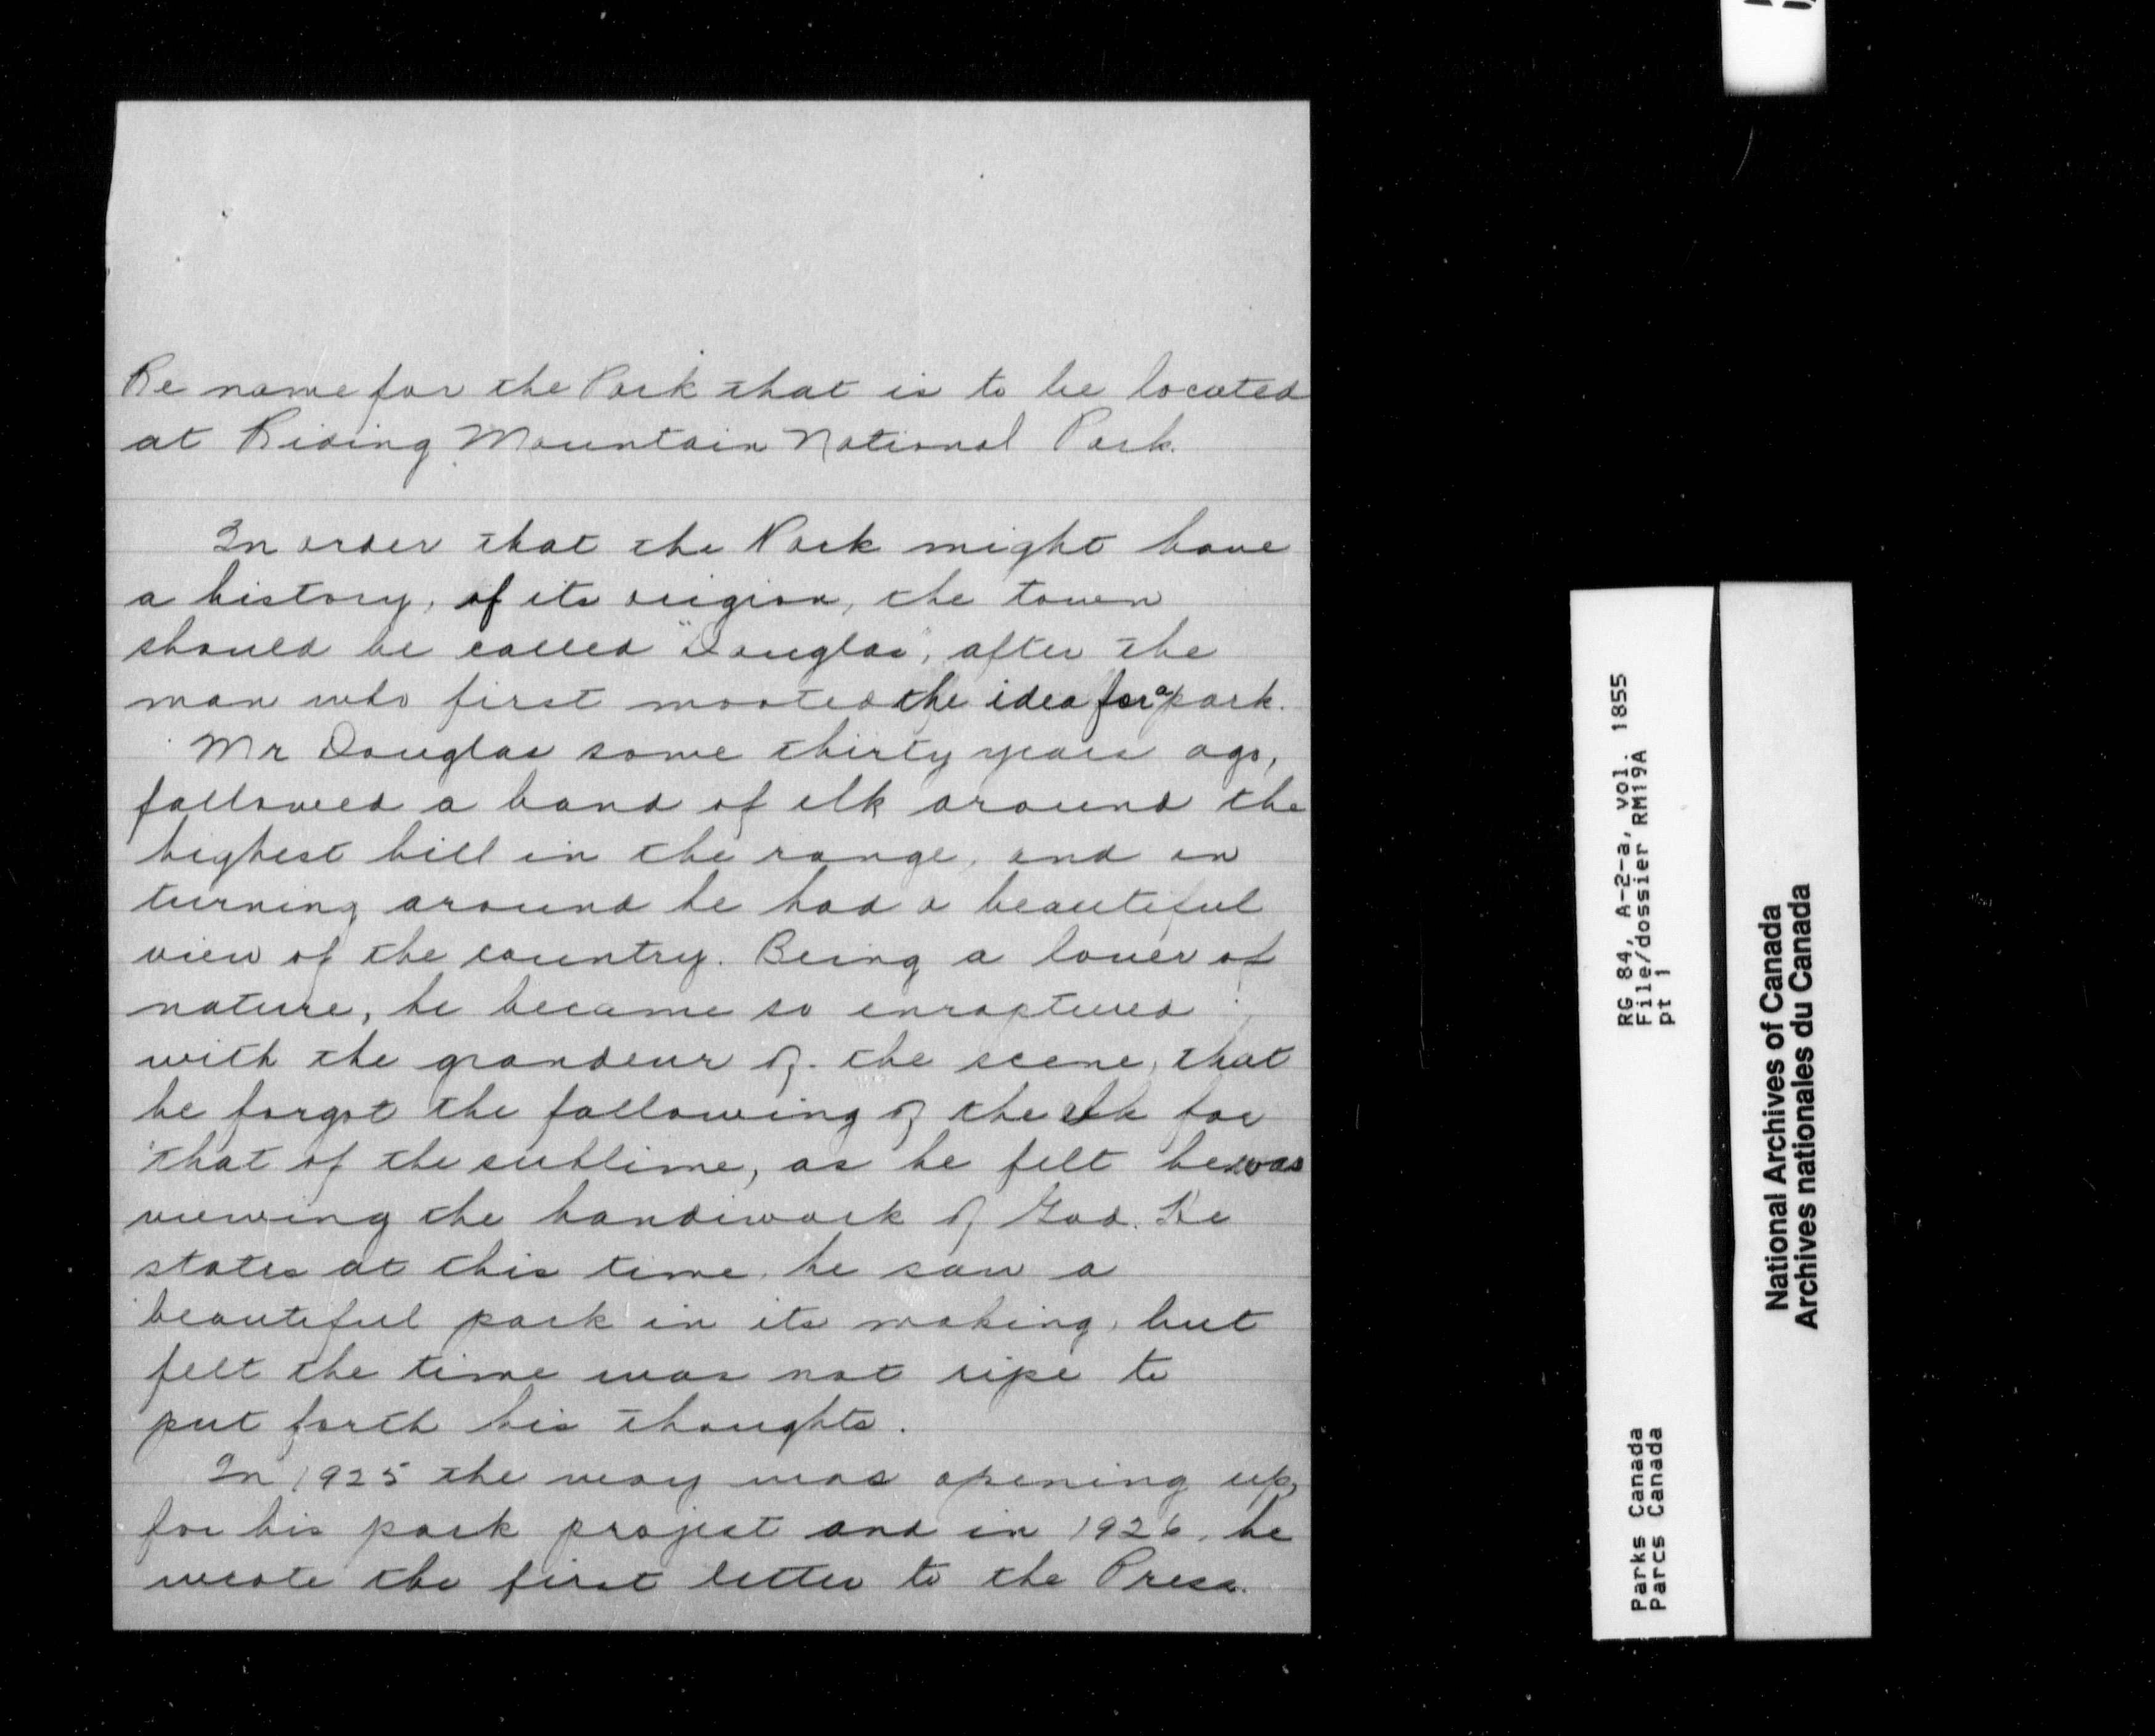 Re name for the Park that is to be located
at Riding Mountain National Park.
In order that the Park might have
a history, of its origion, the town
should be called "Douglas", after the
man who first mooted the idea for a park.
Mr Douglas some thirty years ago,
followed a band of elk around the
highest hill in the range, and on
turning around he had a beautiful
view of the country. Being a lover of
nature, he became so enraptured
with the grandeur of the scene, that
he forgot the following of the elk for
that of the sublime, as he felt he was
viewing the handiwork of God. He
states at this time, he saw a
beautiful park in its making, but
felt the time was not ripe to
put forth his thoughts.
In 1925 the way was opening up,
for his park project and in 1926, he
wrote the first letter to the Press.
RG 84, A-2-a, vol. 1855
File/dossier RM19A
pt 1
Parks Canada
Parcs Canada
National Archives of Canada
Archives nationales du Canada